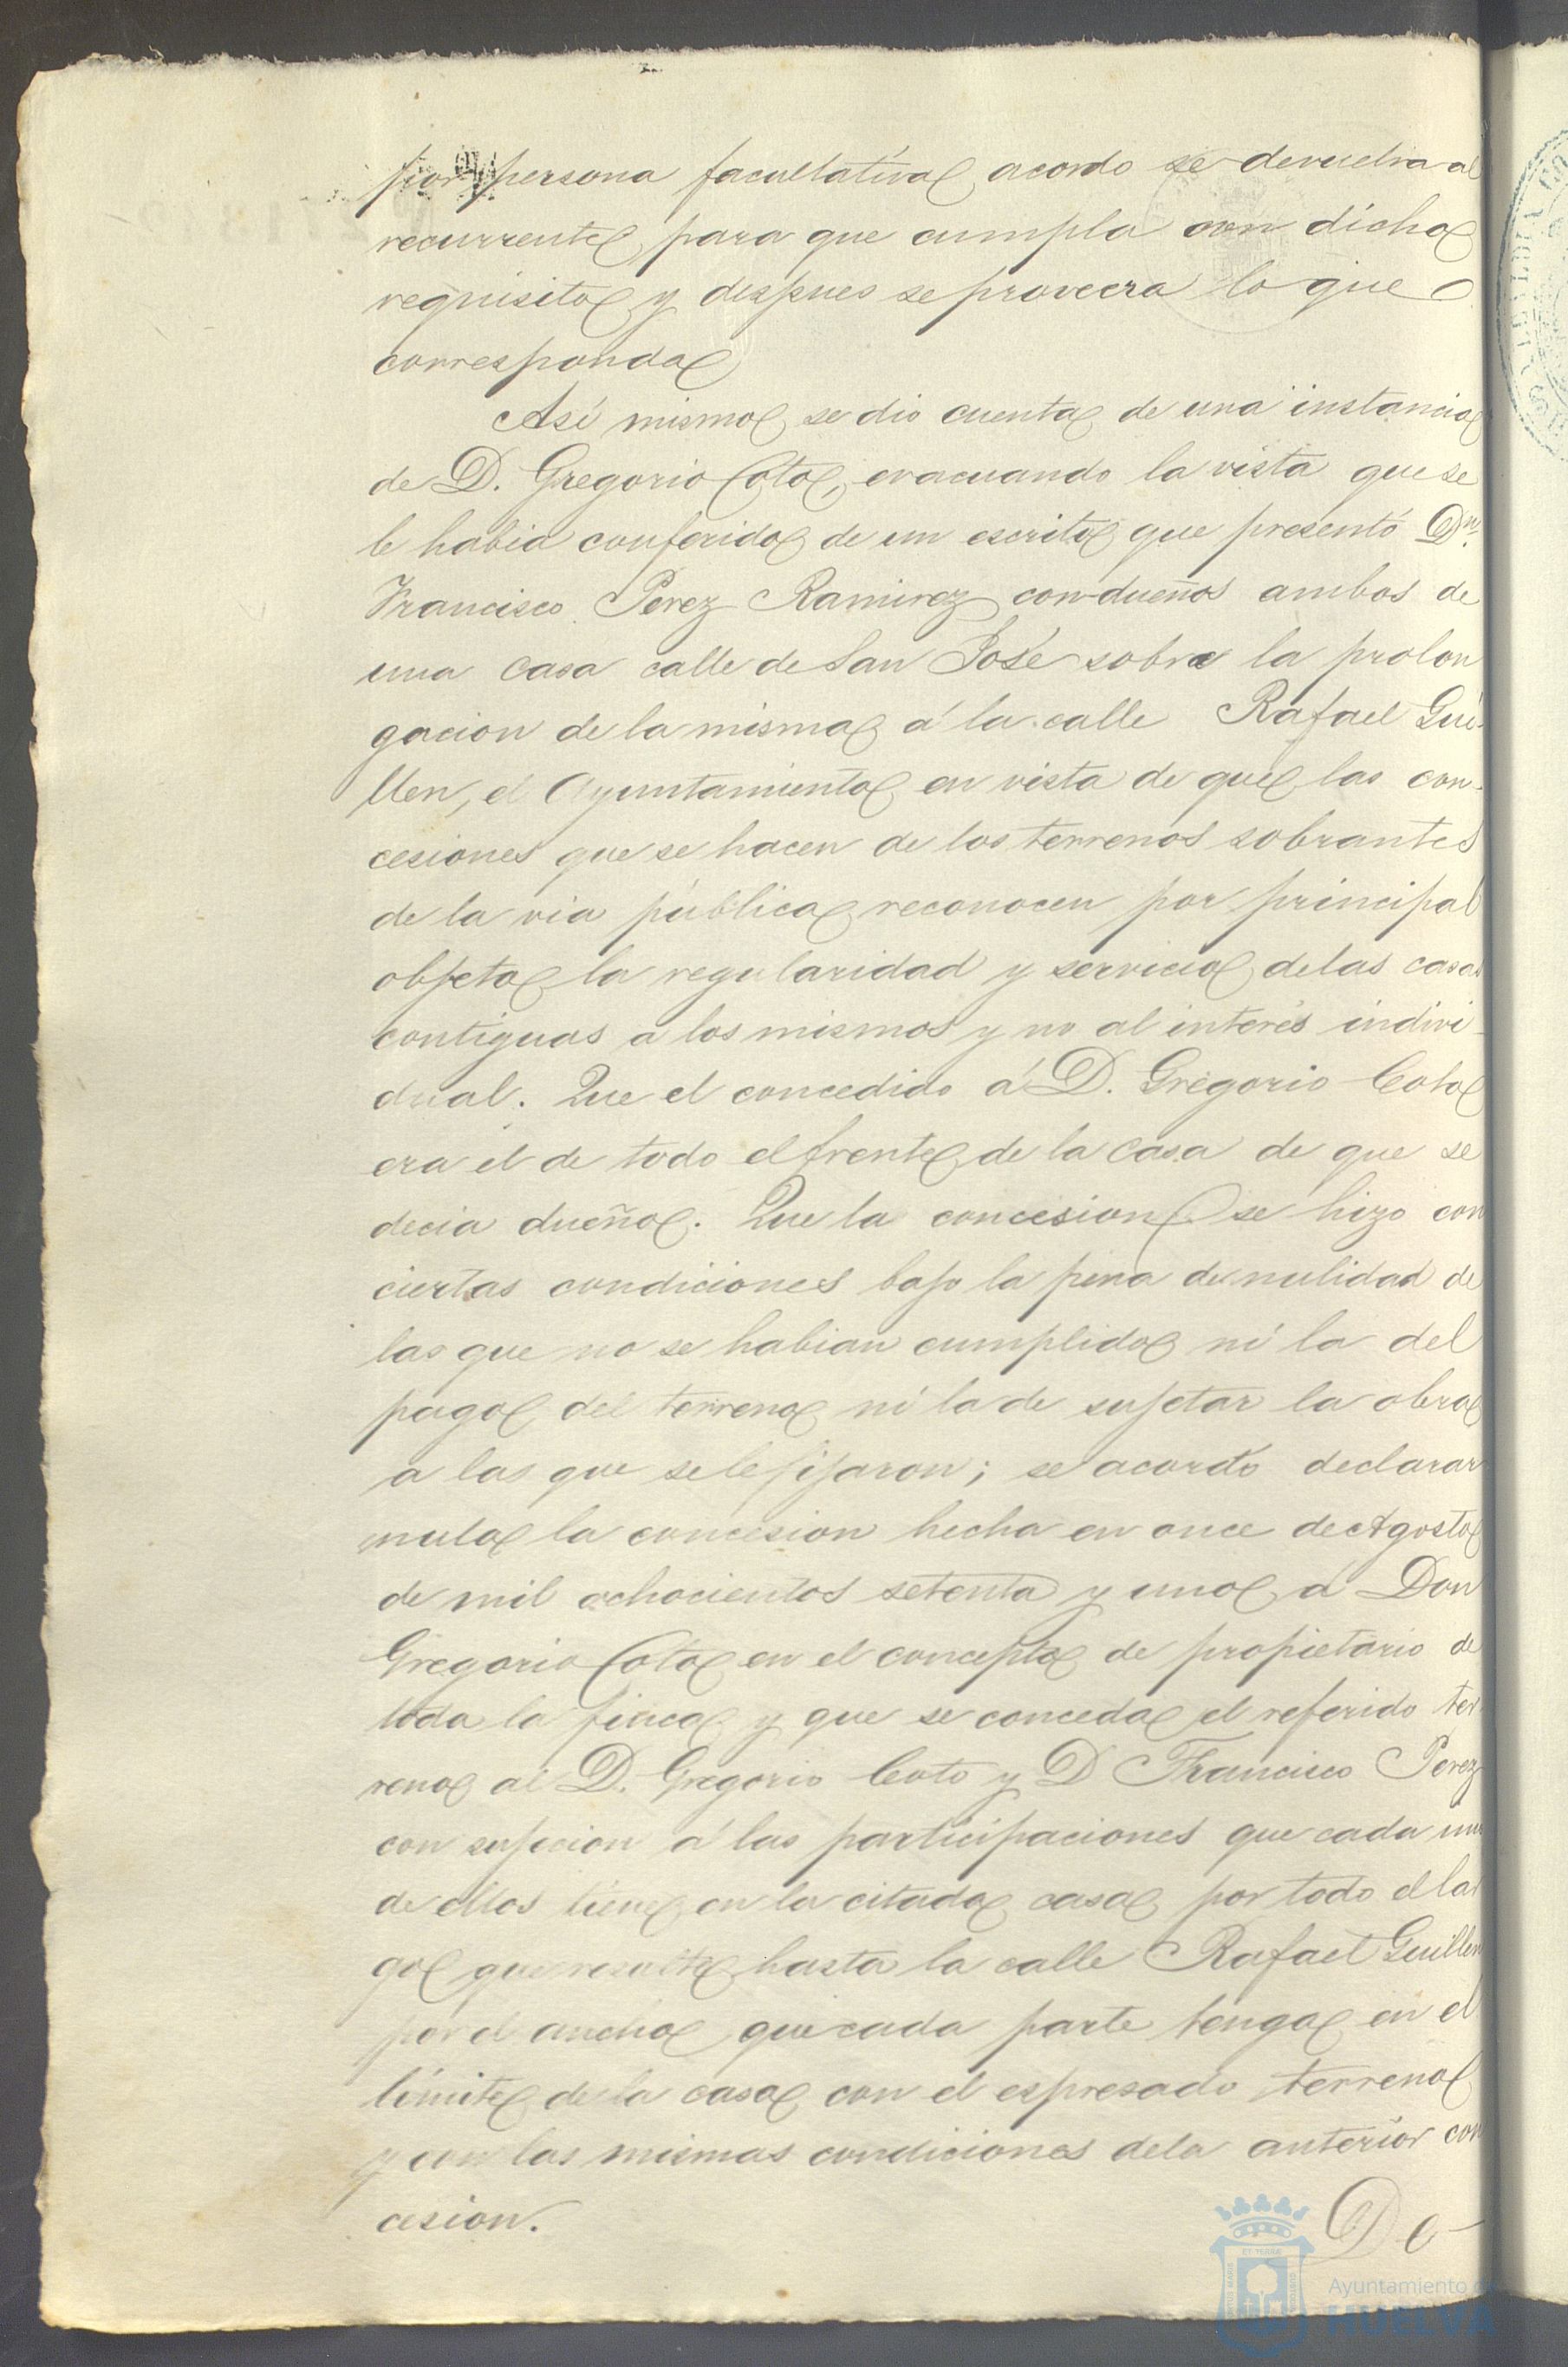 por persona facultativa acordo se devuelva al
recurrente para que cumpla con dicho
requisito y despues se proveera lo que
corresponda
Asi mismo se dio cuenta de una instancia
de D. Gregorio Coto, evacuando la vista que se
le habia conferido de un escrito que presentó Dn.
Francisco Perez Ramirez con-dueños ambos de
una casa calle de San José sobre la prolon
gacion de la misma á la calle Rafael Gui-
llen, el Ayuntamiento en vista de que las con-
cesiones que se hacen de los terrenos sobrantes
de la via pública reconocen por principal
objeto la regularidad y servicio de las casas
contiguas a los mismos y no al interés indivi-
dual. Que el concedido á D. Gregorio Coto
era el de todo el frente de la casa de que se
decia dueño. Que la concesion se hizo con
ciertas condiciones bajo la pena de nulidad de
las que no se habian cumplido ni la del
pago del terreno ni la de sujetar la obra
a las que se le fijaron; se acordó declarar
nula la concesion hecha en once de Agosto
de mil ochocientos setenta y uno á Don
Gregorio Coto en el concepto de propietario de
toda la finca y que se conceda el referido ter
reno al D. Gregorio Coto y D Francisco Perez
con sujecion á las participaciones que cada uno
de ellos tiene en la citada casa por todo el lar
go que resulte hasta la calle Rafael Guillen
por el ancho que cada parte tenga en el
límite de la casa con el espresado terreno
y con las mismas condiciones de la anterior con
cesion.
De
Ayuntamiento de
HUELVA